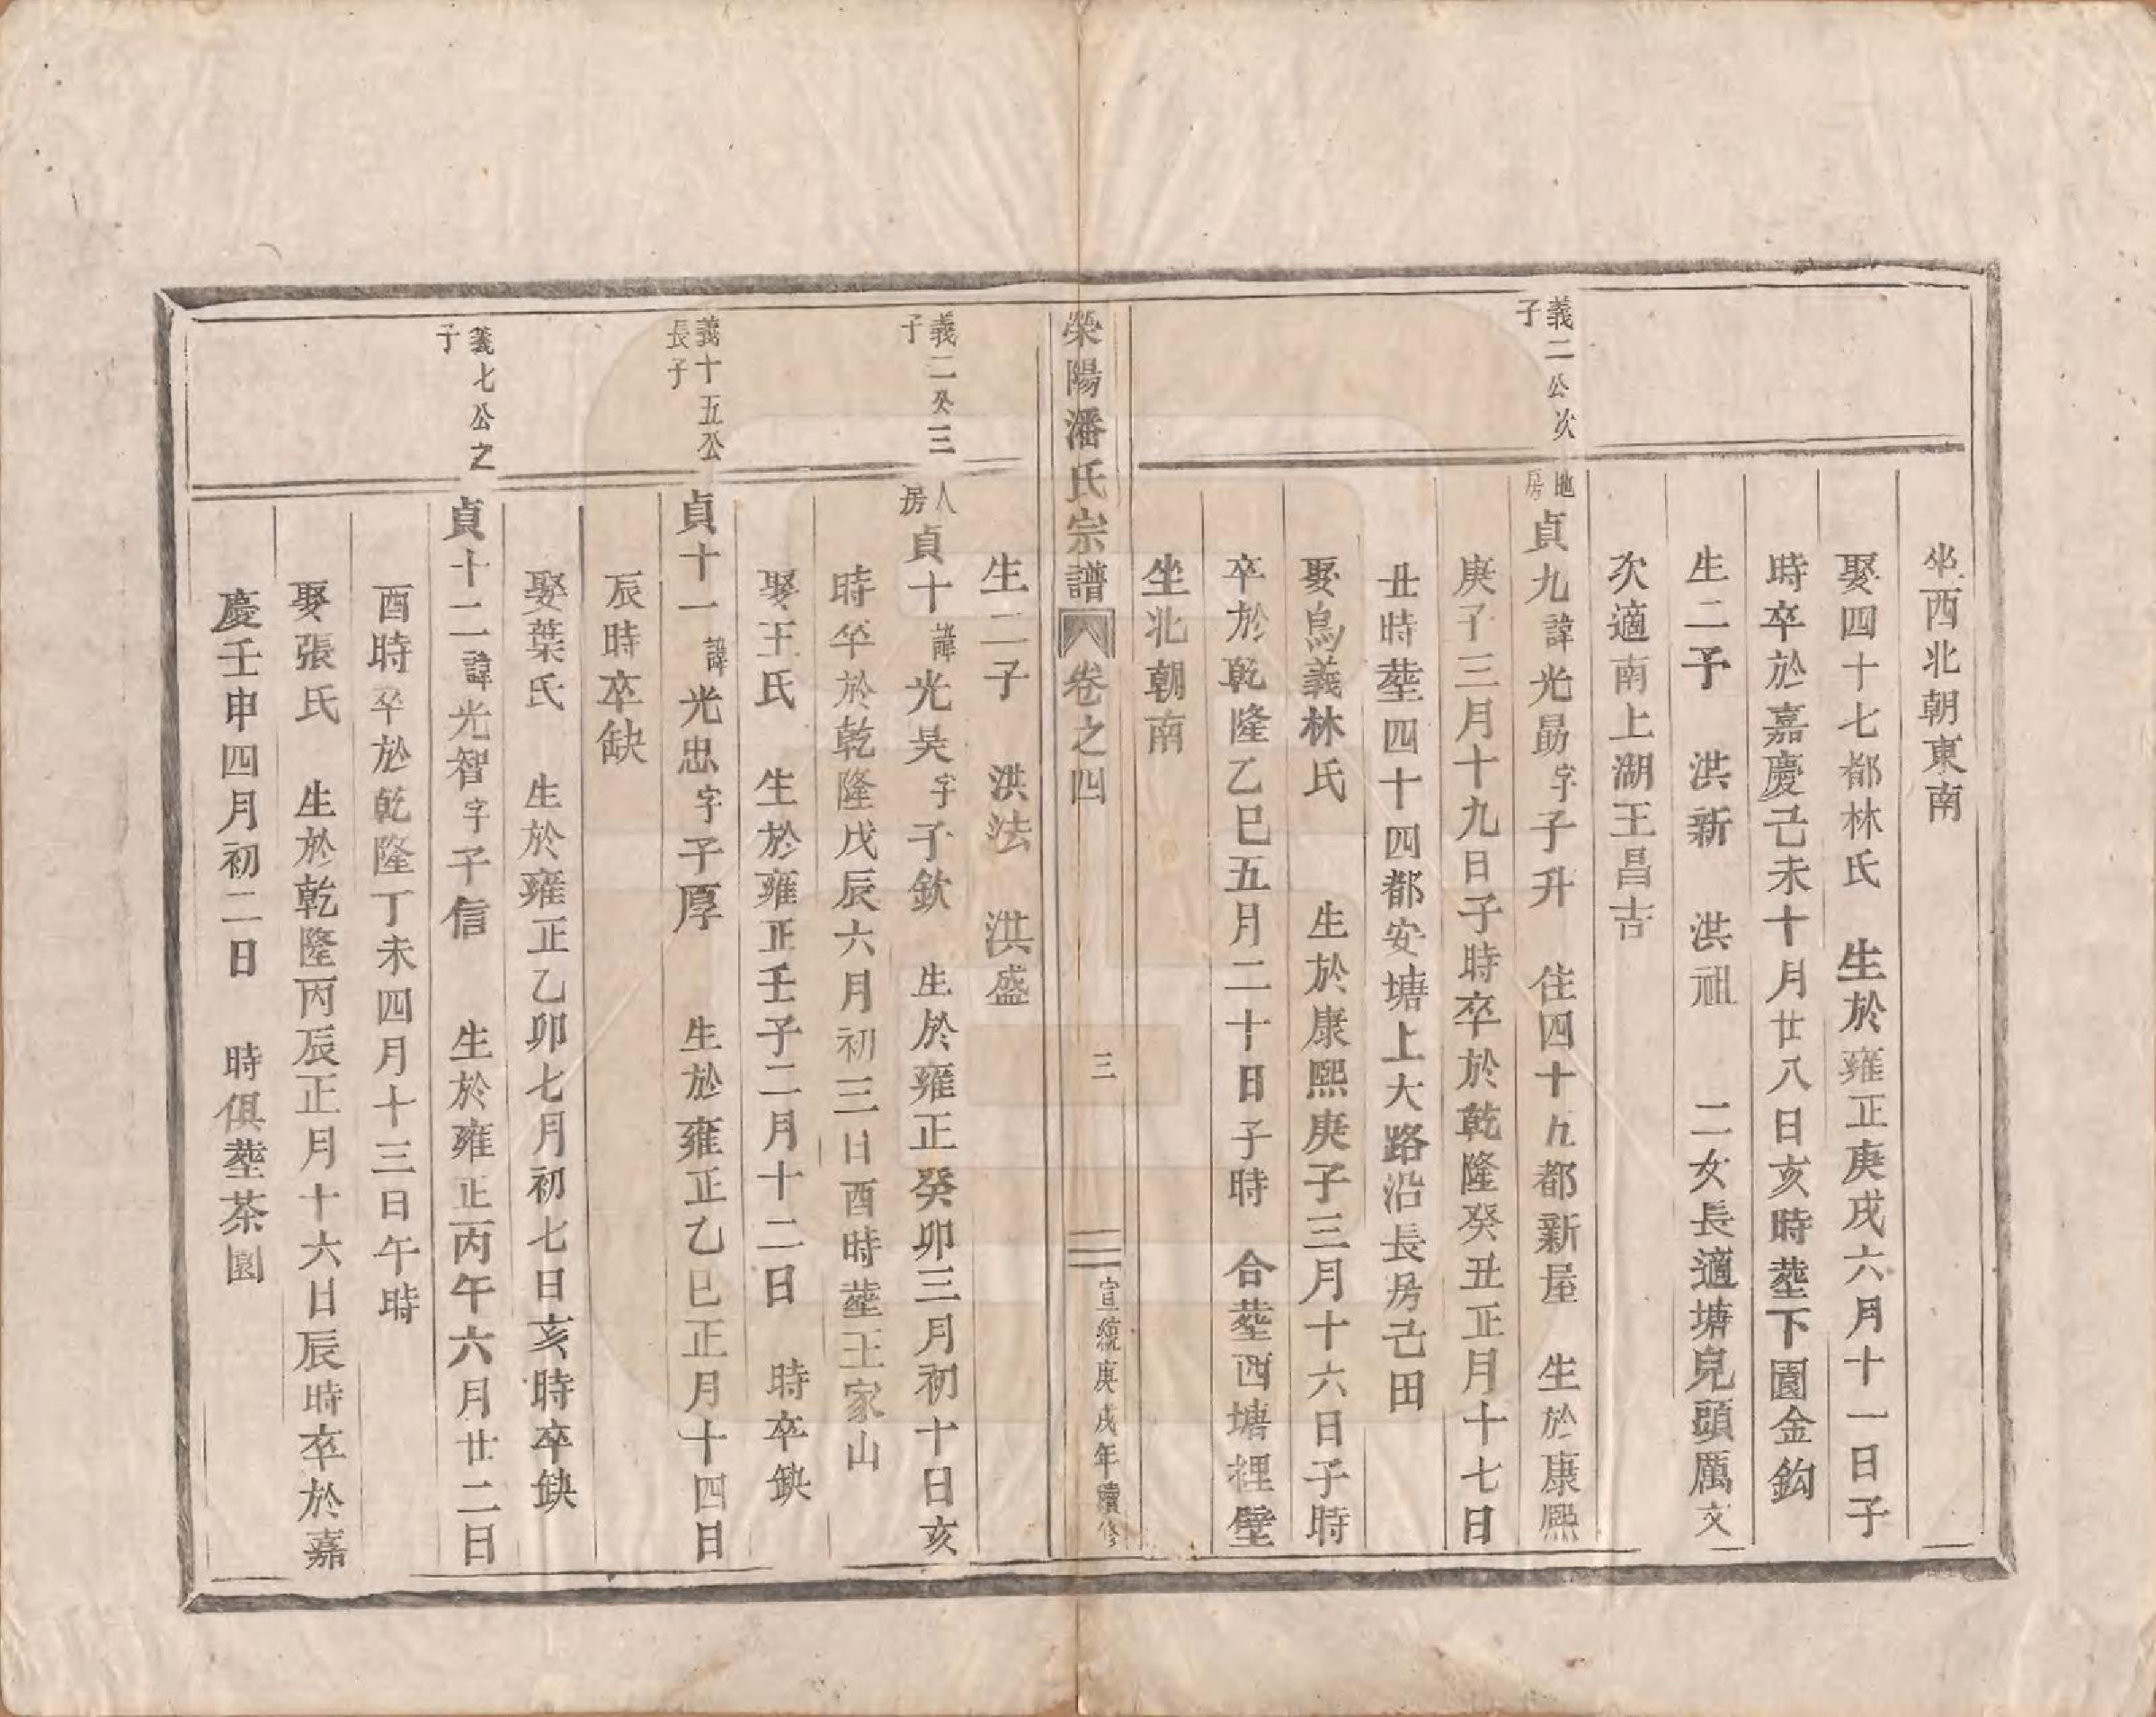 坐西北朝東南
娶四十七都林氏　生於雍正庚戌六月十一日子
時卒於嘉慶己未十月廿八日亥時塟下園金鈎
生二子　洪新　洪祖　二女長適塘兒頭厲文
次適南上湖王昌吉
義二公次
子
地房貞九諱光勗字子升　住四十九都新屋　生於康熙
庚子三月十九日子時卒於乾隆癸丑正月十七日
丑時塟四十四都安塘上大路沿長房己田
娶烏義林氏　生於康熙庚子三月十六日子時
卒於乾隆乙巳五月二十日子時　合塟西塘裡壁
坐北朝南
榮陽潘氏宗譜　卷之四　三　宣統庚戌年續修
生二子　洪法　洪盛
義二公三
子
人房貞十諱光昊字子欽　生於雍正癸卯三月初十日亥
時卒於乾隆戊辰六月初三日酉時塟王家山
娶王氏　生於雍正壬子二月十二日　時卒缺
義十五公
長子
貞十一諱光忠字子厚　生於雍正乙巳正月十四日
辰時卒缺
娶葉氏　生於雍正乙卯七月初七日亥時卒缺
義七公之
子
貞十二諱光智字子信　生於雍正丙午六月廿二日
酉時卒於乾隆丁未四月十三日午時
娶張氏　生於乾隆丙辰正月十六日辰時卒於嘉
慶壬申四月初二日　時俱塟茶園